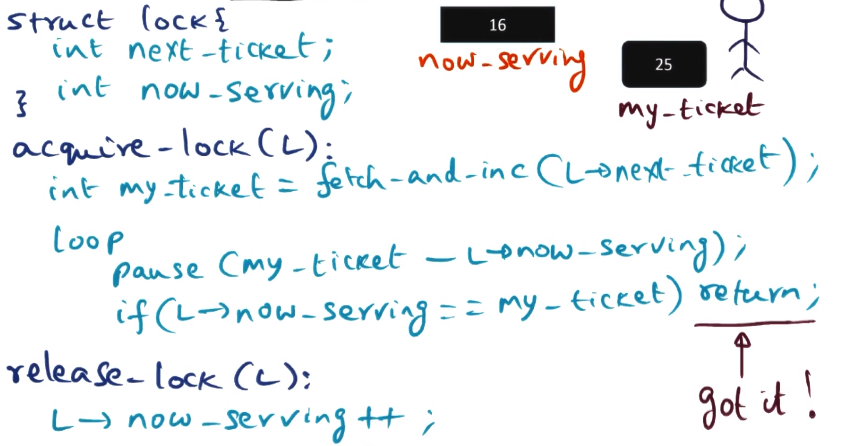 struct lock{
int next-ticket;
int now-serving;
}
16
now-serving
25
my-ticket
acquire-lock(L):
int my-ticket = fetch-and-inc (L→next-ticket);
loop
pause (my-ticket - L→now-serving);
if(L→now-serving == my-ticket) return;
got it!
release-lock(L):
L→ now-serving++;